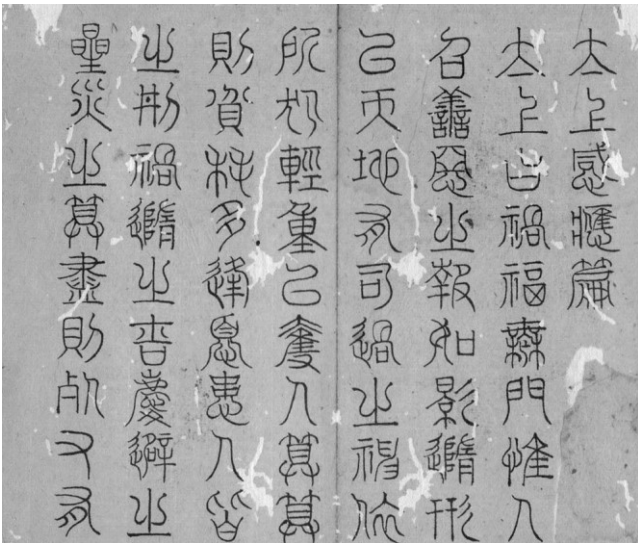 太上感應篇
太上曰禍福無門惟人
召善惡之報如影隨形
以天地有司過之神依
所犯輕重以奪人算算
則貧耗多逢憂患人皆
之刑禍隨之吉慶避之
星災之算盡則死又有